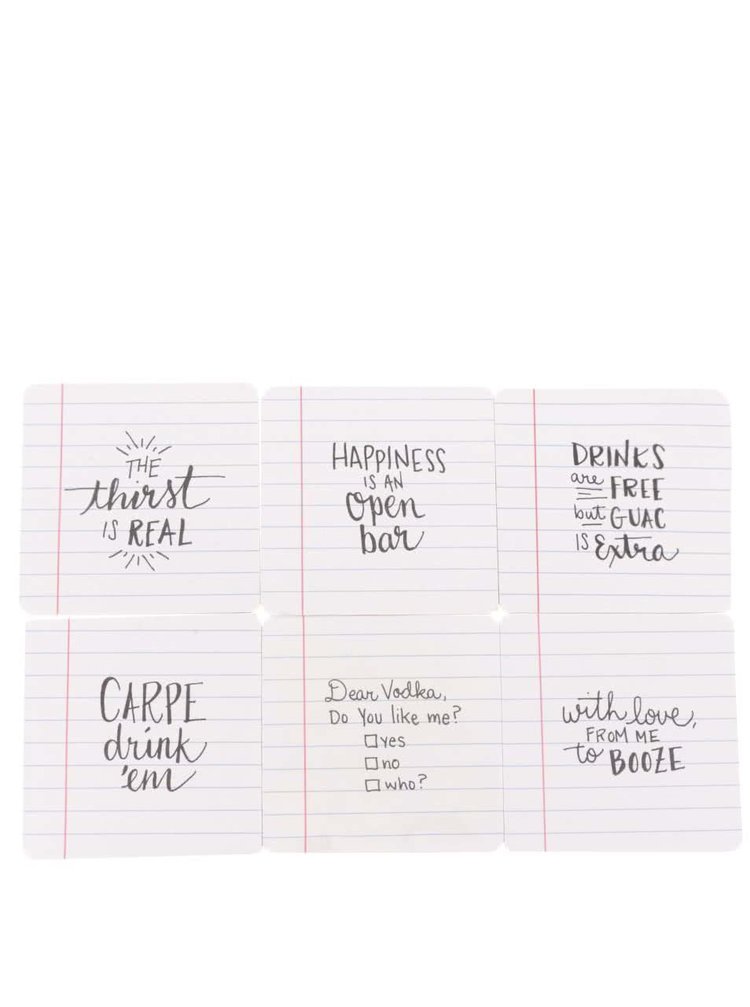 THE
thirst
IS REAL
HAPPINESS
IS AN
Open
bar
DRINKS
are FREE
but GUAC
IS Extra
CARPE
drink
'em
Dear Vodka,
Do You like me?
☐ yes
☐ no
☐ who?
with love,
FROM ME
to BOOZE